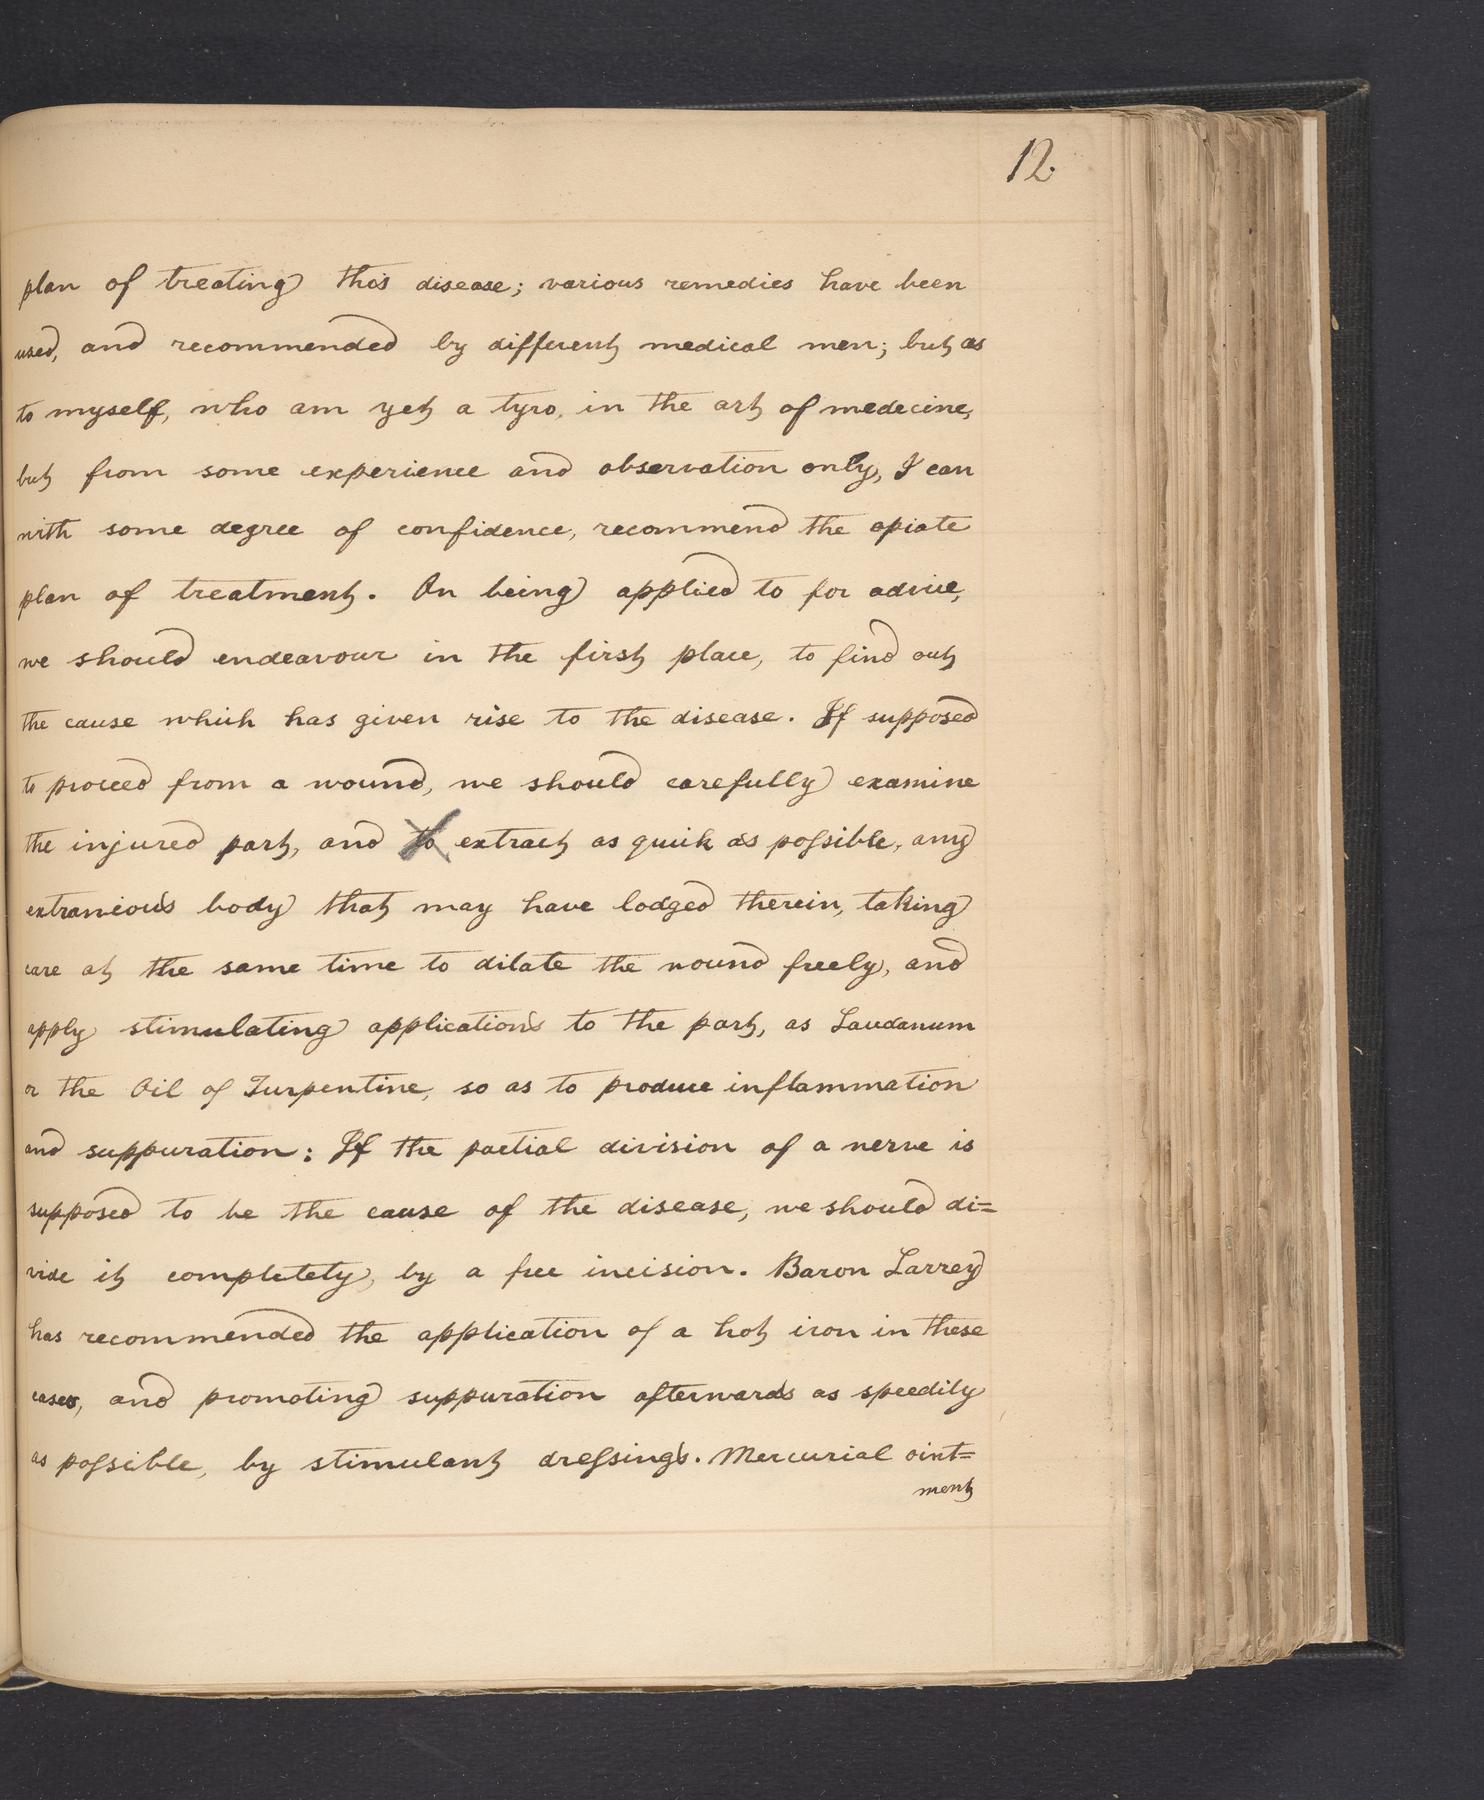 12.
plan of treating this disease; various remedies have been
used, and recommended by different medical men; but as
to myself, who am yet a tyro, in the art of medecine,
but from some experience and observation only, I can
with some degree of confidence, recommend the opiate
plan of treatment. On being applied to for advice,
we should endeavour in the first place, to find out
the cause which has given rise to the disease. If supposed
to proceed from a wound, we should carefully examine
the injured part, and to extract as quick as possible, any
extranious body that may have lodged therein, taking
care at the same time to dilate the wound freely, and
apply stimulating applications to the part, as Laudanum
or the Oil of Turpentine, so as to produce inflammation
and suppuration: If the partial division of a nerve is
supposed to be the cause of the disease, we should di=
vide it completely, by a free incision. Baron Larrey
has recommended the application of a hot iron in these
cases, and promoting suppuration afterwards as speedily
as possible, by stimulant dressings. Mercurial oint=
ment